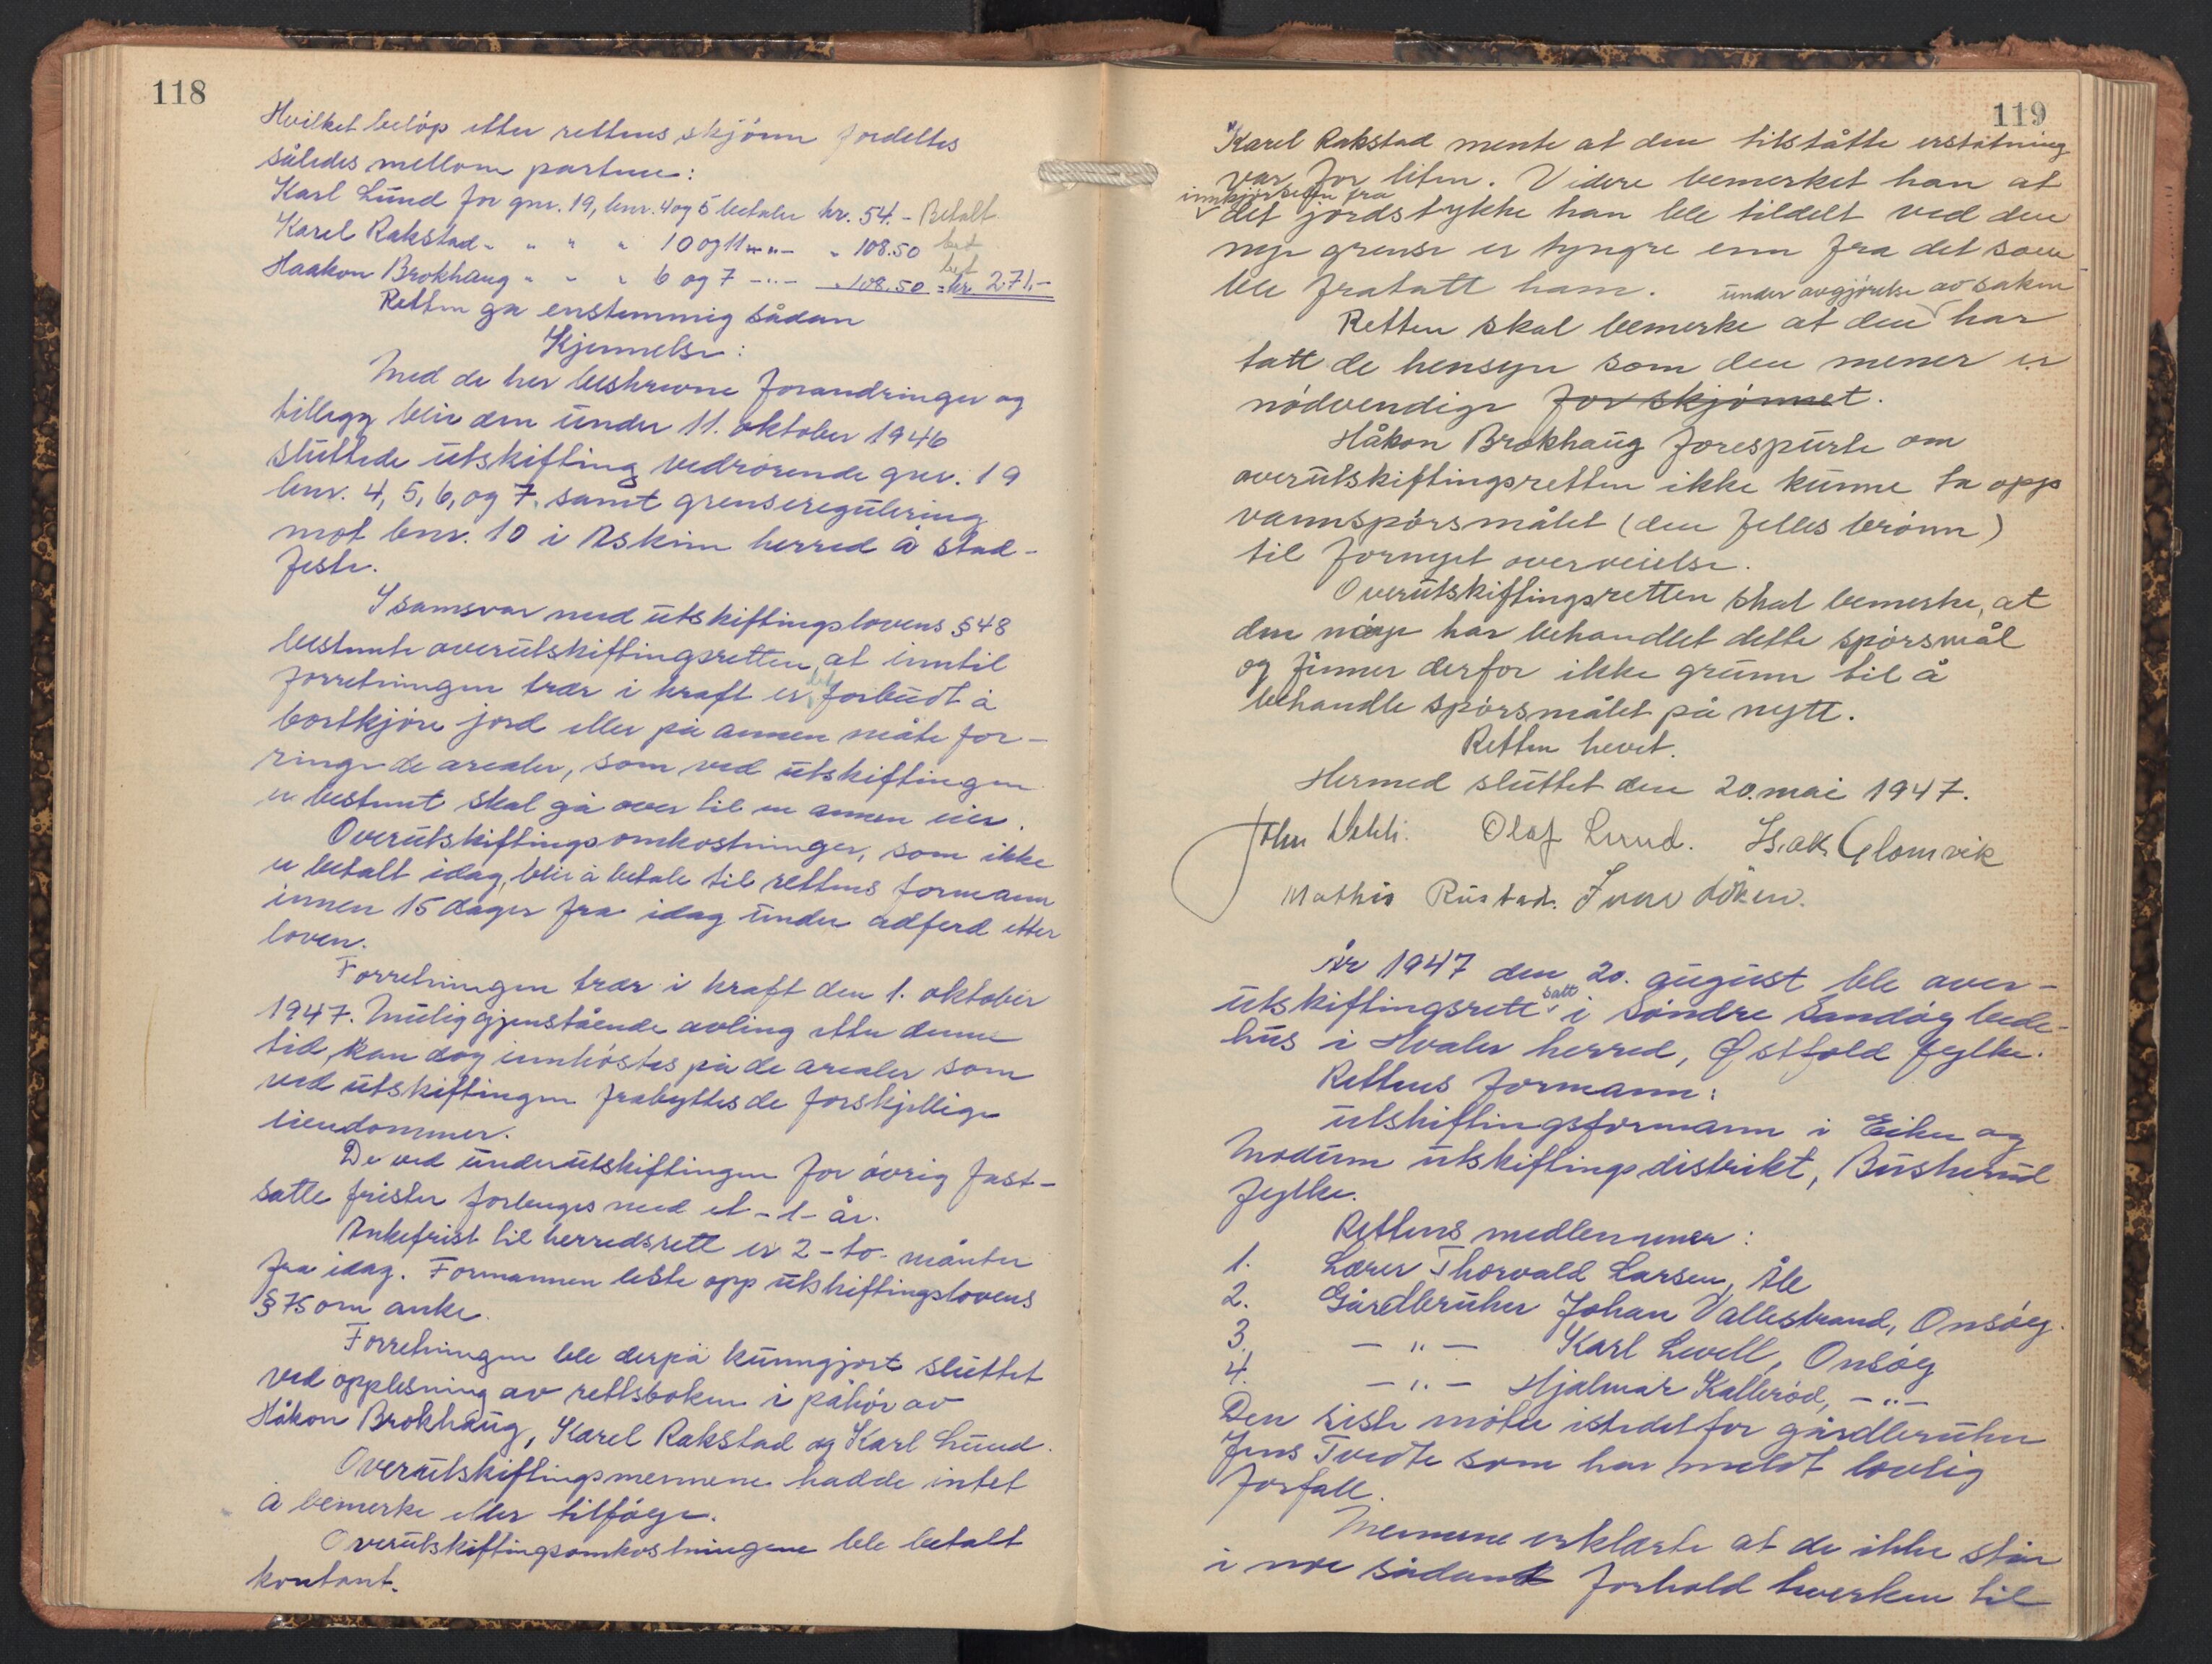 118
Hvilket beløp etter rettens skjønn fordeltes
således mellom partene:
Karl Lund for gnr. 19, bnr. 4 og 5 betaler kr. 54.- Betalt
Karel Rakstad " " " " 10 og 11 -"- " 108.50 bet
Haakon Brokhaug " " " 6 og 7 -"- " 108.50 = kr. 271,- bet
Retten ga enstemmig sådan
Kjennelse:
Med de her beskrevne forandringer og
tillegg blir den under 11. oktober 1946
sluttede utskifting vedrørende gnr. 19
bnr. 4, 5, 6, og 7, samt grenseregulering
mot bnr. 10 i Askim herred å stad-
feste.
I samsvar med utskiftingslovens § 48
bestemte overutskiftingsretten, at inntil
forretningen trær i kraft er det forbudt å
bortkjøre jord eller på annen måte for-
ringe de arealer, som ved utskiftingen
er bestemt skal gå over til en annen eier.
Overutskiftingsomkostninger, som ikke
er betalt idag, blir å betale til rettens formann
innen 15 dager fra idag under adferd etter
loven.
Forretningen trær i kraft den 1. oktober
1947. Mulig gjenstående avling etter denne
tid, kan dog innhøstes på de arealer som
ved utskiftingen frabyttes de forskjellige
eiendommer.
De ved underutskiftingen for øvrig fast-
satte frister forlenges med et -1- år.
Ankefrist til herredsrett er 2 -to- måneder
fra idag. Formannen leste opp utskiftingslovens
§ 75 om anke.
Forretningen ble derpå kunngjort sluttet
ved opplesning av rettsboken i påhør av
Håkon Brokhaug, Karel Rakstad og Karl Lund.
Overutskiftingsmennene hadde intet
å bemerke eller tilføye.
Overutskiftingsomkostningene ble betalt
kontant.
119
Karel Rakstad mente at den tilståtte erstatning
var for liten. Videre bemerket han at
innkjørselen fra
det jordstykke han ble tildelt ved den
nye grense er tyngre enn fra det som
ble fratatt ham. under avgjørelse av saken
Retten skal bemerke at den har
tatt de hensyn som den mener er
nødvendige for skjønnet.
Håkon Brokhaug forespurte om
overutskiftingsretten ikke kunne ta opp
vannspørsmålet (den felles brønn)
til fornyet overveielse.
Overutskiftingsretten skal bemerke, at
den nøye har behandlet dette spørsmål
og finner derfor ikke grunn til å
behandle spørsmålet på nytt.
Retten hevet.
Hermed sluttet den 20. mai 1947.
John Olaf Lund. Isak Glomvik
Mathis Rustad. Iver Löken.
År 1947 den 20. august ble over-
utskiftingsrett satt i Søndre Sandøy bede-
hus i Hvaler herred, Østfold fylke.
Rettens formann:
utskiftingsformann i Eiker og
Modum utskiftingsdistrikt, Buskerud
fylke.
Rettens medlemmer:
1. Lærer Thorvald Larsen, Åle
2. Gårdbruker Johan Vallestrand, Onsøy.
3. -"- Karl Levell, Onsøy
4. -"- Hjalmar Kallerød, -"-
Den siste møter istedetfor gårdbruker
Jens Tvedte som har meldt lovlig
forfall.
Mennene erklærte at de ikke står
i noe sådant forhold hverken til